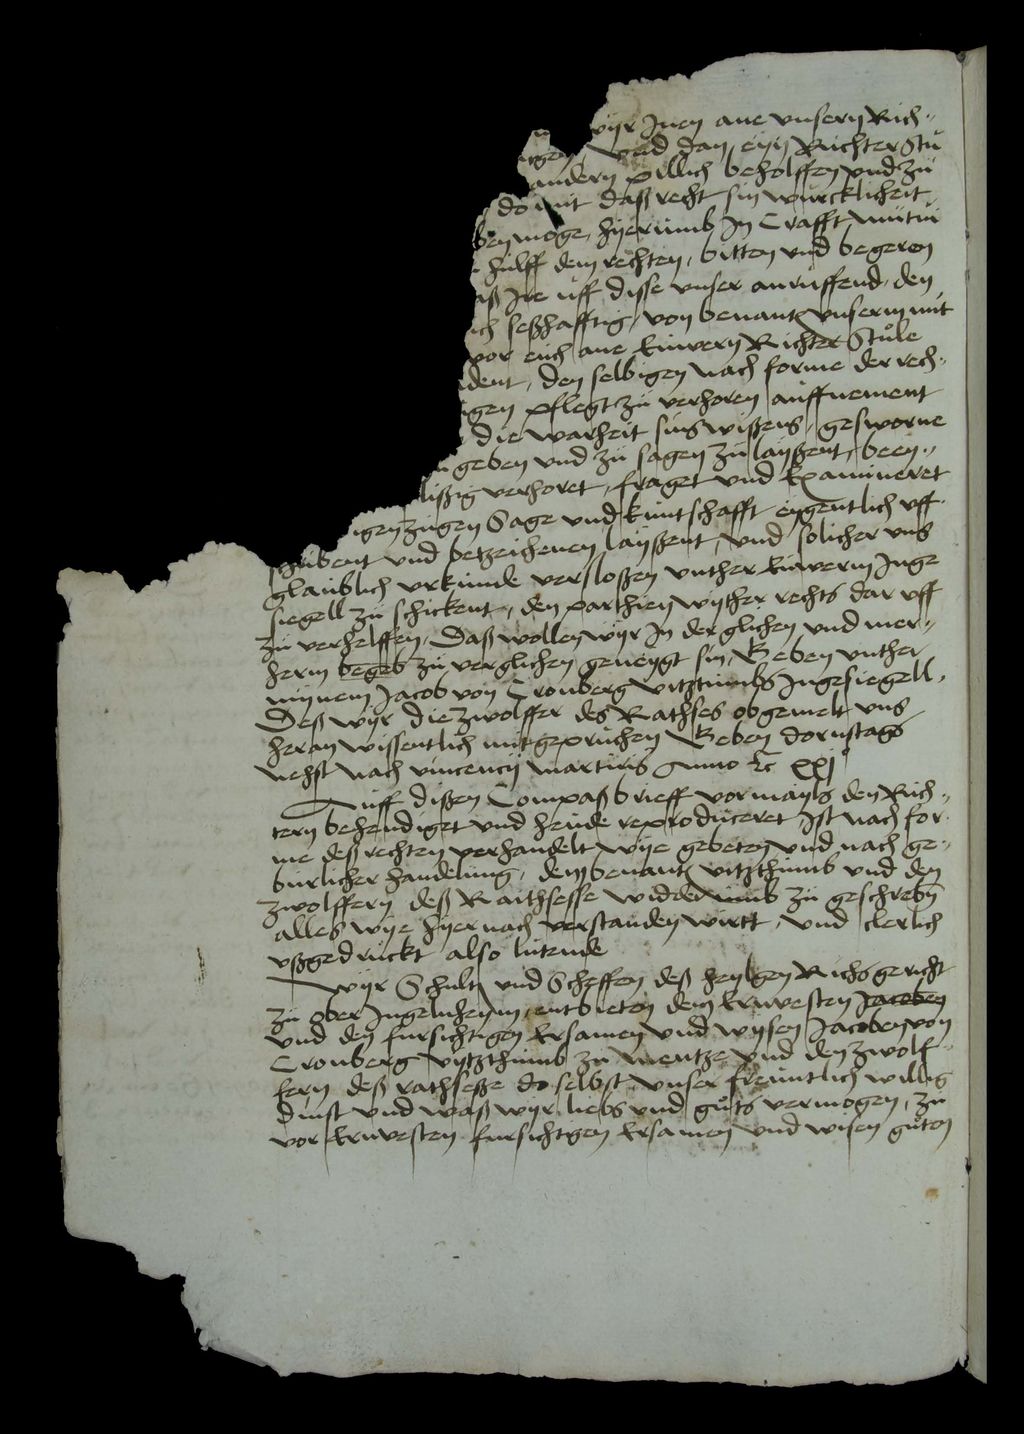 wyr Inen ane unsern Rich-
ngen, und dan eyn Richter Stu
andern pillich beholffen und zu
do mit daß recht sin wurcklicheit
ben moge, hyerumb In Crafft mutui
hulff dem rechten, bitten und begeren
aß Ire uff disse unser anruffend, den
ich seßhafftig, von benant unserm mit
vor euch ane Euwern Richter Stule
dent, den selbigen nach forme der rech-
gen pflegt zu verhoren auffnement
die warheit sins wißens, gesworne
geben und zu sagen zu layßent, been-
lißig verhoret, fraget und Examineret
igen zugen Sage und kuntschafft eygentlich uff
schribent und betzeichenen layßent, und solicher uns
glaublich urkunde versloßen unther Euwerm Inge
siegell zu schickent, den parthien wyther rechts dar uff
zu verhelffen, Daß wollen wyr In der glichen und mer-
herm begeb zu verglichen geneygt sin, Geben unther
mynem Jacob von Cronberg vitztumbs Ingesiegell.
Deß wyr die zwolffer des Rathses obgemelt uns
heran wissentlich mit gepruchen Geben dornstags
nehst nach vincency martiris Anno etc xxj
Auff dißen Compaß brieff vormayls den Rich-
tern behendiget und heude reproduceret, Ist nach for-
me deß rechten verhandelt wye gebeten und nach ge-
burlicher handelung, dem benant vitzthumb und den
zwolffern deß Raithsesse widderumb zu geschreben
alles wye hyer nach verstanden wirtt, und clerlich
ußgedruckt also lutende
Wyr Schult und Scheffen deß heylgen Richs gericht
zu ober Ingelnheym, entbieten dem Ernvesten Jacoben
und den fursichtigen Ersamen und wysen Jacoben von
Cronberg vytzthumb zu Mentze und den zwolf-
fern deß rathseße do selbst unser freuntlich willig
dinst und waß wyr liebs und guts vermogen, zu
vor Ernvesten fursichtgen Ersamen und wisen guten